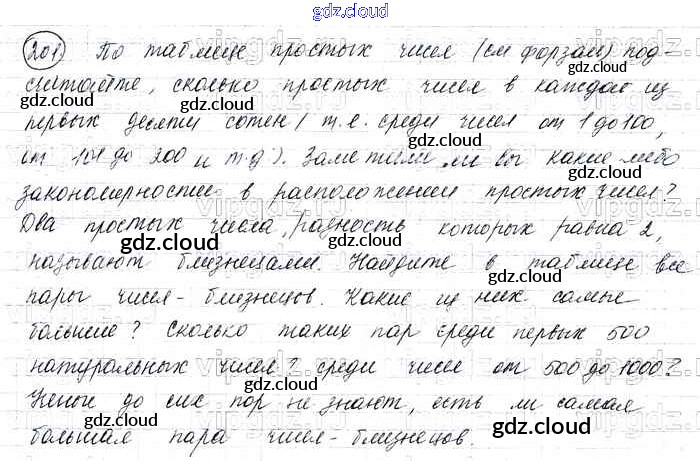 gdz.cloud
201) По таблице простых чисел (см форзац) под-
считайте, сколько простых чисел в каждой из
первых десяти сотен (т.е. среди чисел от 1 до 100,
от 101 до 200 и т.д.). Заметили ли вы какие либо
закономерности в расположении простых чисел?
Два простых числа, разность которых равна 2,
называют близнецами. Найдите в таблице все
пары чисел-близнецов. Какие из них самые
большие? Сколько таких пар среди первых 500
натуральных чисел? среди чисел от 500 до 1000?
Ученые до сих пор не знают, есть ли самая
большая пара чисел-близнецов.